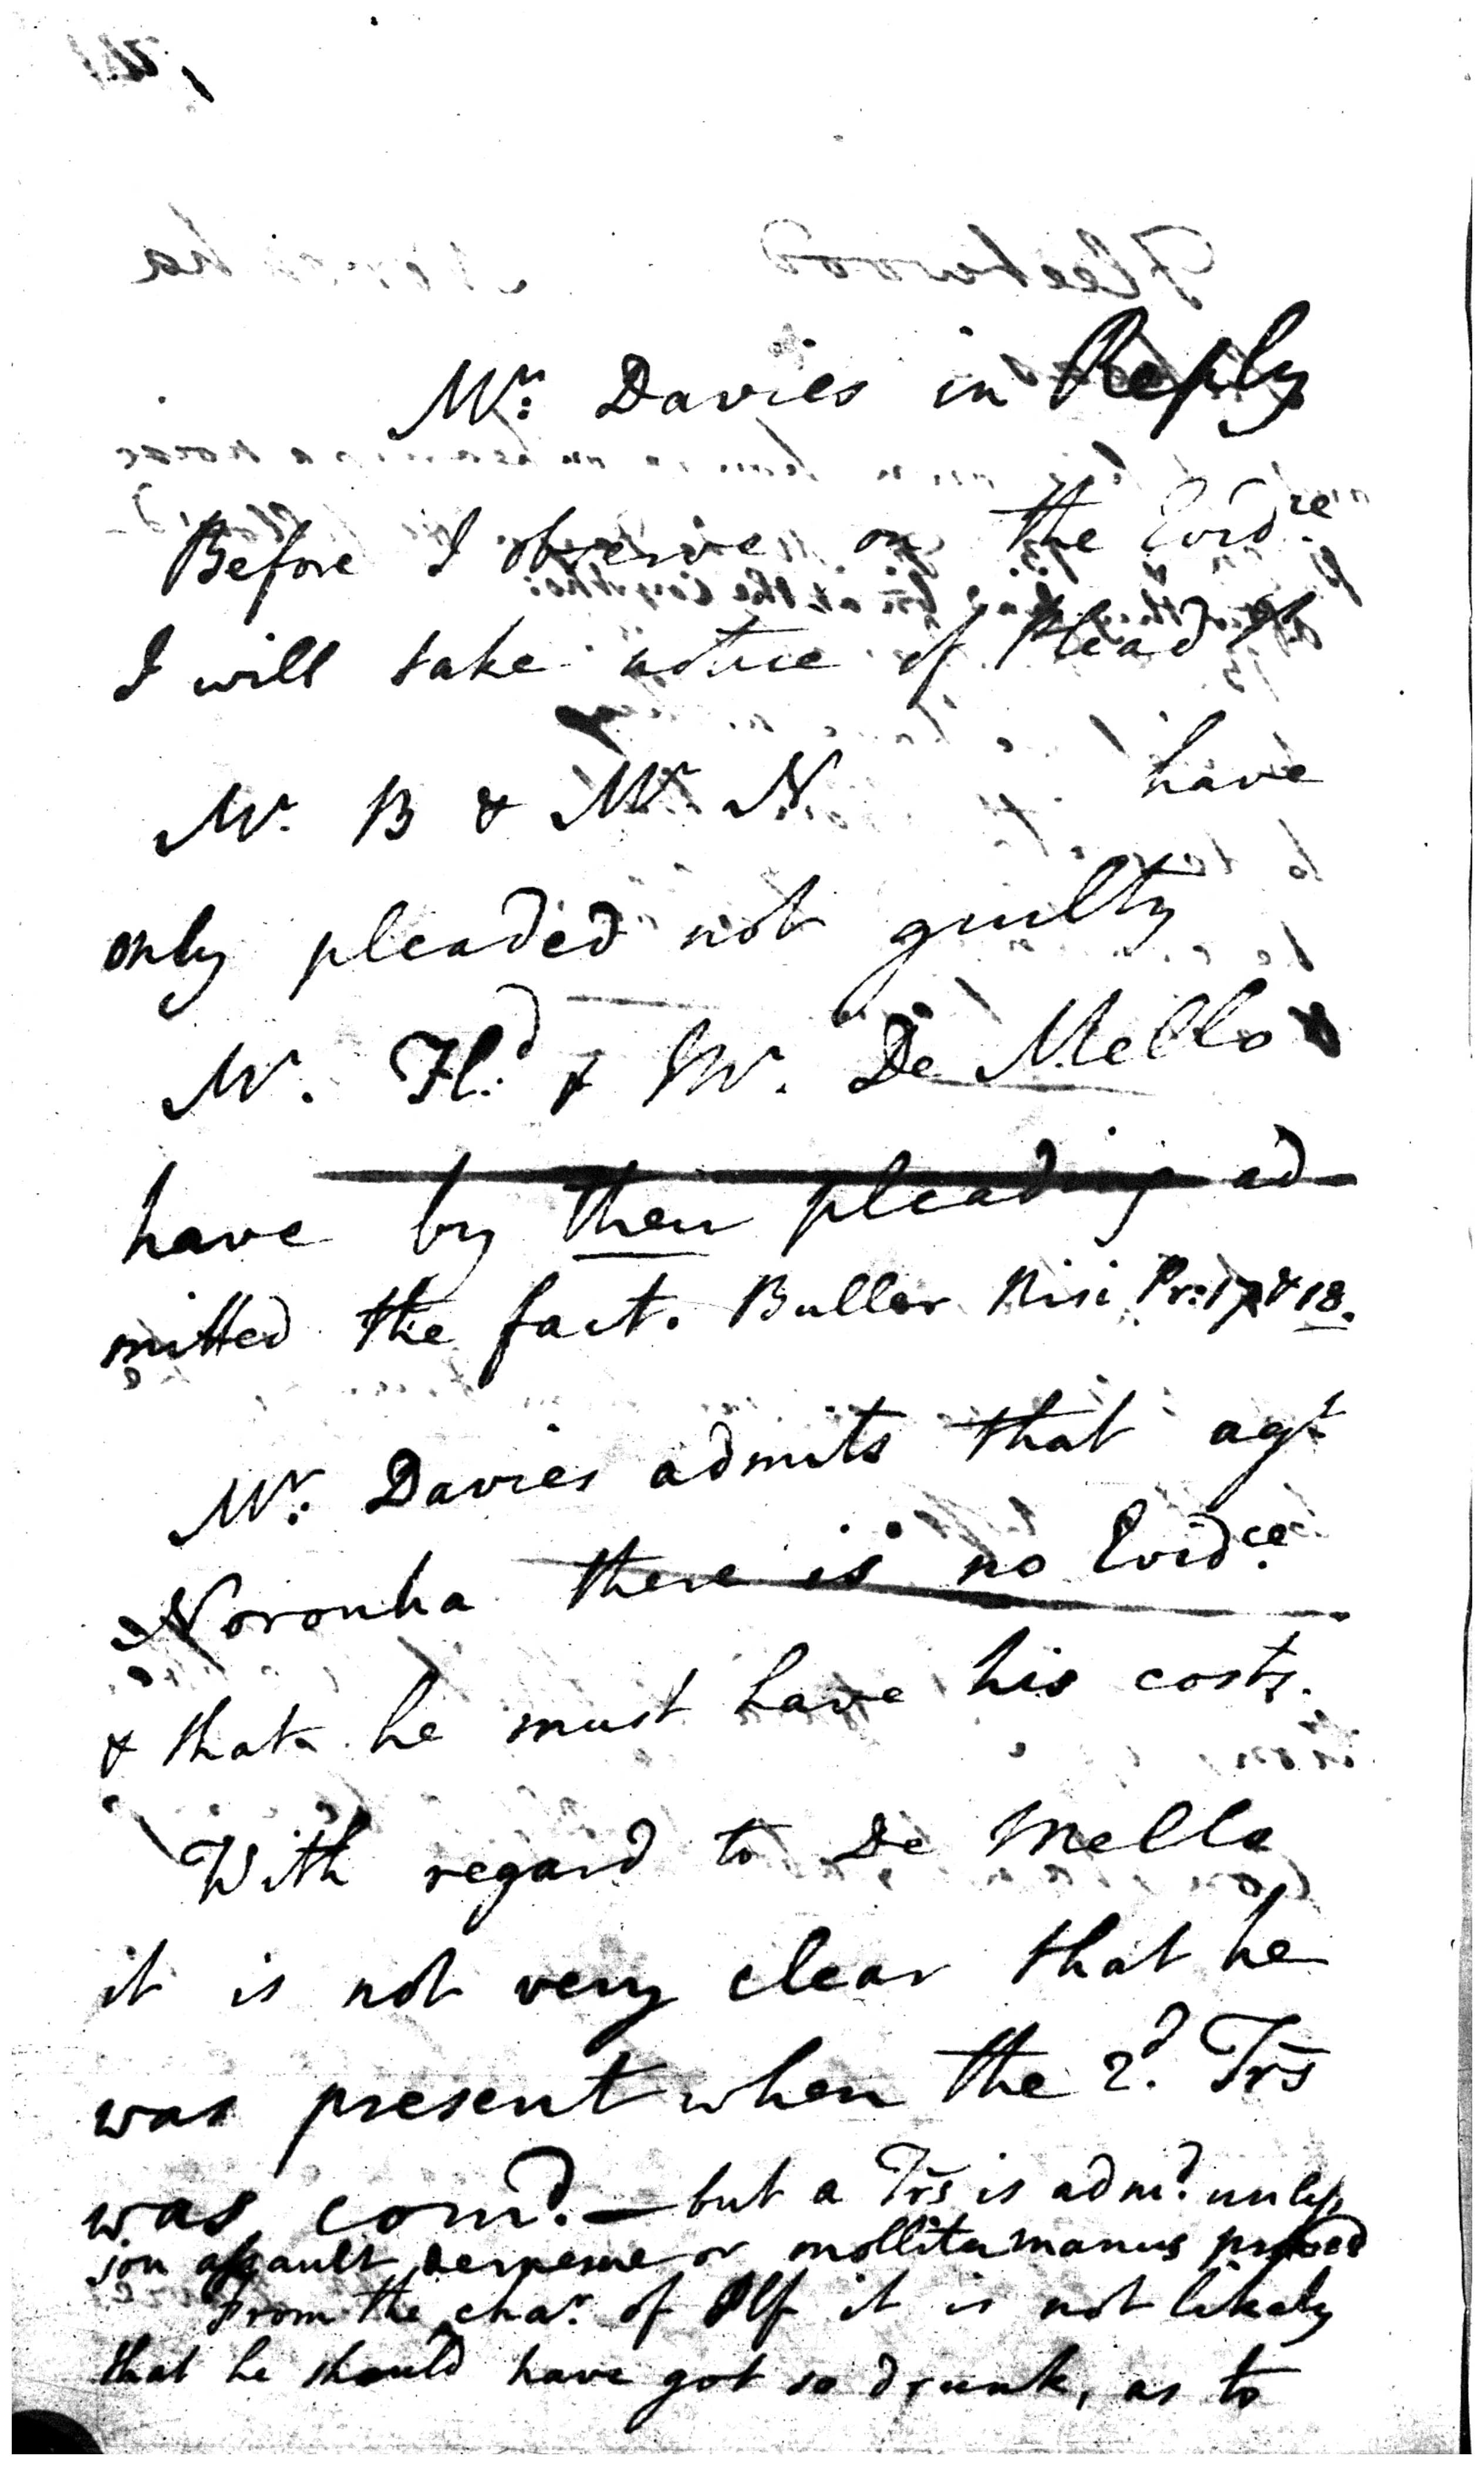 Mr. Davies in Reply
Before I observe on the Evidce.
I will take notice of Pleadgs
Mr. B & Mr. N have
only pleaded not guilty
Mr. Fld. & Mr. De Mello
have by their pleading ad-
mitted the fact. Buller Nisi Pr: 17 & 18.
Mr. Davies admits that agt.
Noronha there is no Evidce.
& that he must have his costs.
With regard to De Mello
it is not very clear that he
was present when the 2d. Trs
was comd. — but a Trs is admd. unless
son assault demesne or mollitu manus proved
From the char. of Plf it is not likely
that he should have got so drunk, as to